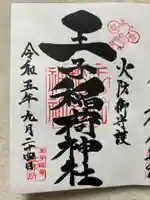 火防御守護
王子稲荷神社
令和五年九月二十四日